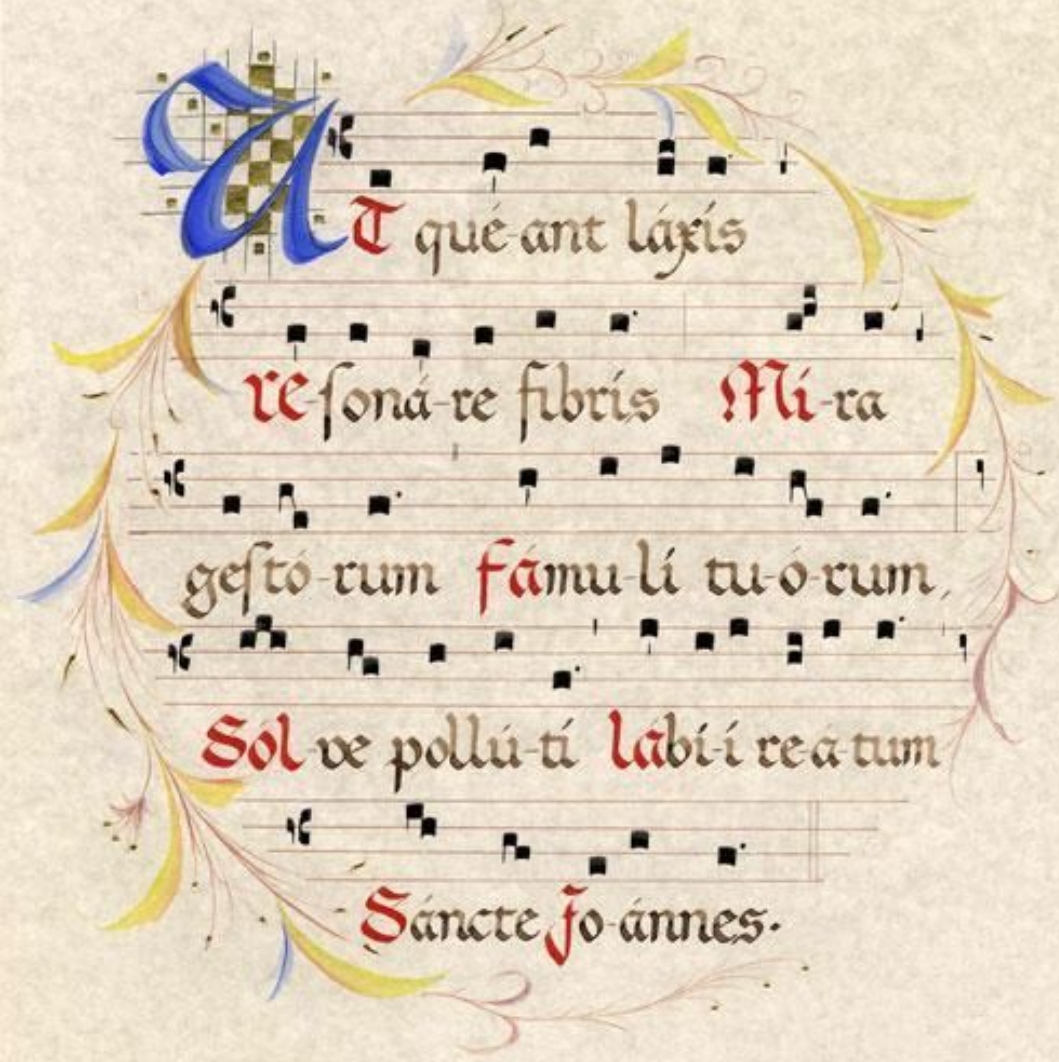 UT qué-ant láxis
re-ſoná-re fibris Mi-ra
geſtó-rum fámu-li tu-ó-rum,
Sól-ve pollú-ti lábi-i re-a-tum
Sáncte Jo-ánnes.